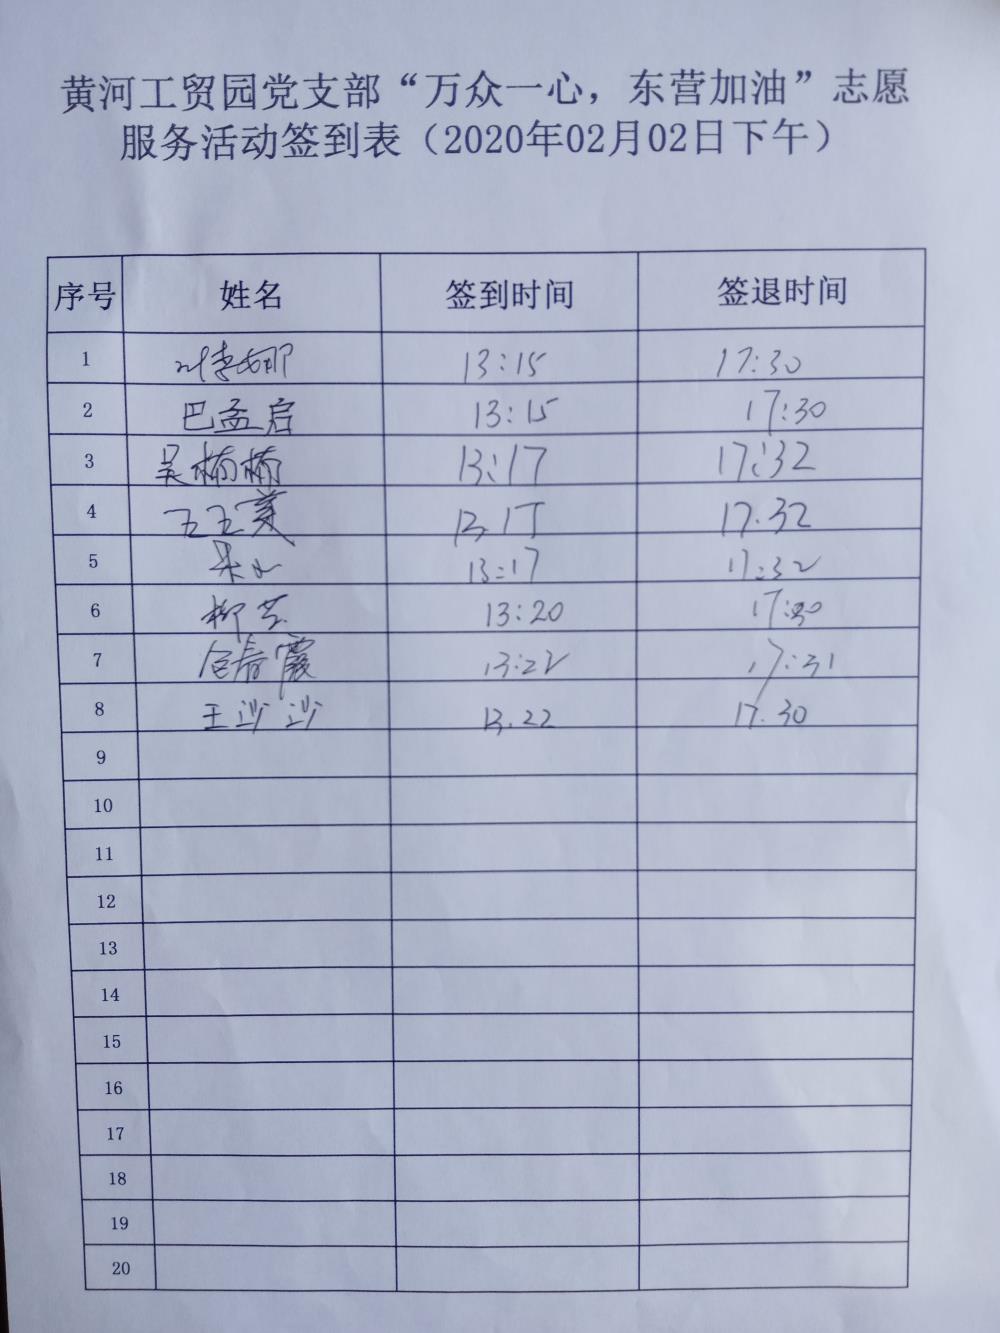 黄河工贸园党支部“万众一心，东营加油”志愿
服务活动签到表（2020年02月02日下午）
序号 姓名 签到时间 签退时间
1 13:15 17:30
2 巴孟启 13:15 17:30
3 吴楠楠 13:17 17:32
4 王玉美 13.17 17.32
5 13:17 17:32
6 柳芸 13:20 17:30
7 春霞 13:22 17:31
8 王沙沙 13.22 17.30
9
10
11
12
13
14
15
16
17
18
19
20